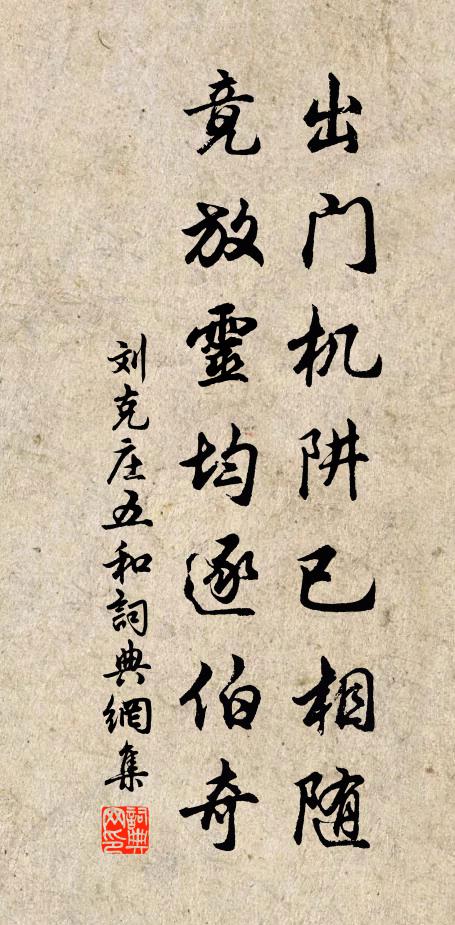 出门机阱已相随
竟放靈均逐伯奇
刘克庄五和詞典網集
詞典
网印